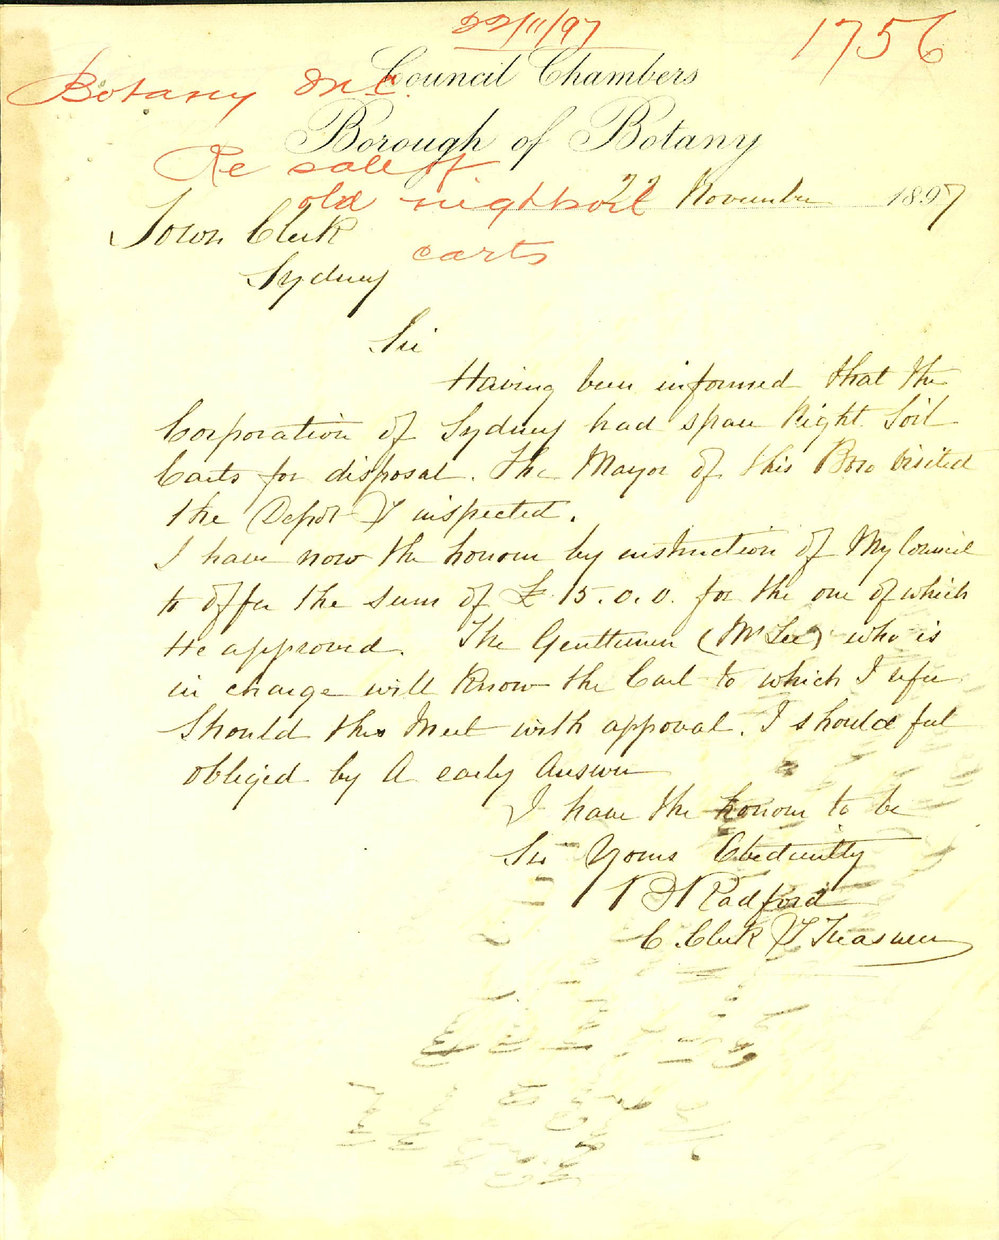 22/11/97
1756
Botany M.C.
Council Chambers
Borough of Botany
Re sale of
old nightsoil
carts
22 November 1897
Town Clerk
Sydney
Sir
Having been informed that the
Corporation of Sydney had spare Night Soil
Carts for disposal. The Mayor of this Boro visited
the Depot & inspected.
I have now the honour by instruction of My Council
to offer the sum of £15.0.0. for the one of which
He approved. The Gentleman (Mr Lee) who is
in charge will Know the Cart to which I refer
Should this Meet with approval. I should feel
obliged by A early Answer
I have the honour to be
Sir Yours Obediently
Radford
C. Clerk & Treasurer